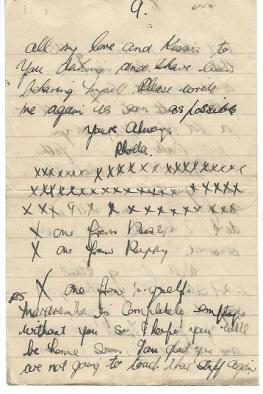 9.
all my love and Kisses to
you darling and I have been
behaving myself Please write
me again as soon as possible
Yours Always
xxxxxxxxxxxxxx xxxxxxxxxx
xxxxxxxxxxxxxxxxxx xxxxxx
x x x x x x x x x x x x x
X one from
X one from
X one from myself
PS
is completely empty
without you so I hope you will
be home soon. I am glad you
are not going to touch that stuff again